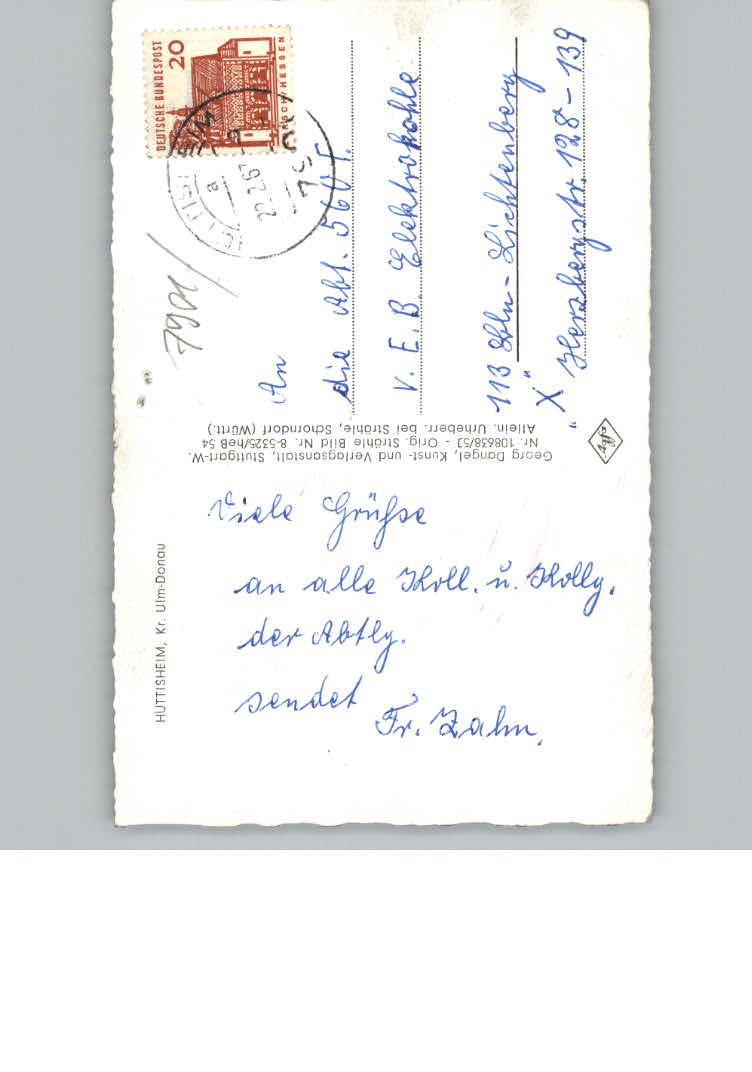 HÜTTISHEIM, Kr. Ulm-Donau
Viele Grühse
an alle Koll. u. Kollg.
der Abtlg.
sendet
Fr. Zahn.
Georg Dangel, Kunst- und Verlagsanstalt, Stuttgart-W.
Nr. 108638/53 - Orig. Strähle Bild Nr. 8-5325/heB 54
Allein. Urheberr. bei Strähle, Schorndorf (Württ.)
DEUTSCHE BUNDESPOST
20
LORSCH/HESSEN
HÜTTISHEIM
a
22.2.67
7901
An
die Abt.
V. E. B. Elektrokohle
113 Bln - Lichtenberg
"X"
Herzbergstr. 128 - 139